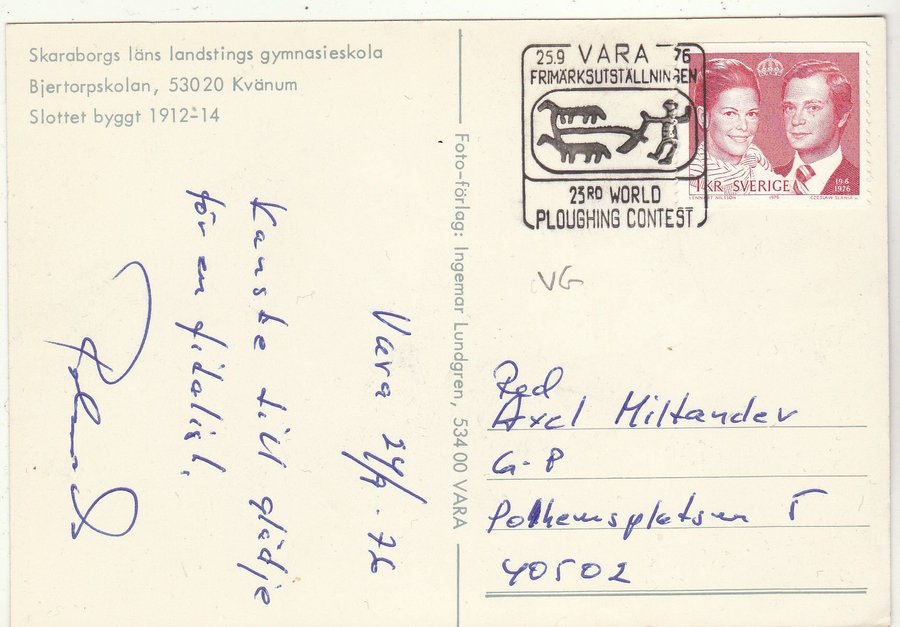 Skaraborgs läns landstings gymnasieskola
Bjertorpskolan, 53020 Kvänum
Slottet byggt 1912-14
Foto-förlag: Ingemar Lundgren, 534 00 VARA
25.9 VARA 76
FRIMÄRKSUTSTÄLLNINGEN
23RD WORLD
PLOUGHING CONTEST
1 KR SVERIGE
19 6
1976
LENNART NILSSON 1976 CZESLAW SLANIA sc
VG
Vara 24/9 - 76
Kanske till glädje
för en
Red
Axel Miltander
G-P
Polhemsplatsen 5
40502